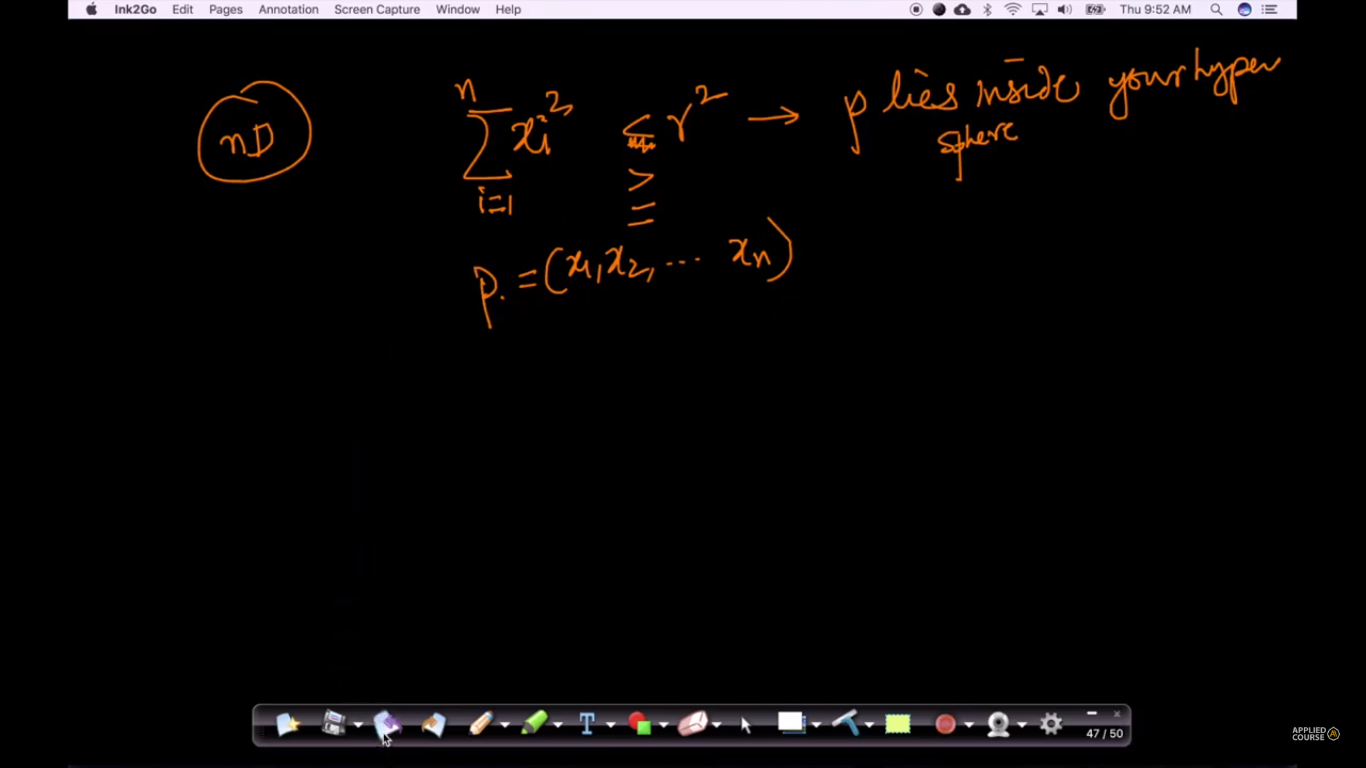 Ink2Go Edit Pages Annotation Screen Capture Window Help Thu 9:52 AM
nD
n
∑ xi² < r² → p lies inside your hyper
sphere
i=1
>
=
p. = (x1, x2, ... xn)
T
47 / 50
APPLIED
COURSE